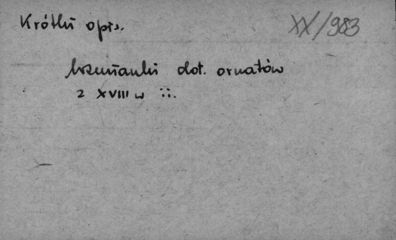 Krótki opis.
XX/983
Wzmianki dot. ornatów
z XVIII w